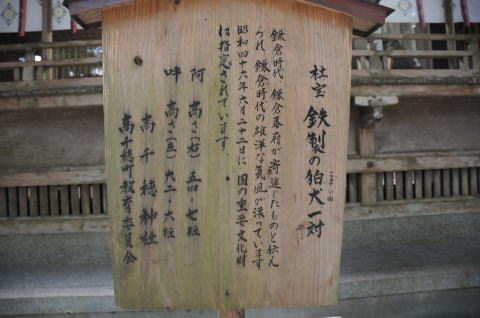 社宝 鉄製の狛犬一対
鎌倉時代、鎌倉幕府が寄進したものと伝え
られ、鎌倉時代の雄渾な気風が漂っています
昭和四十六年六月二十二日に国の重要文化財
に指定されています。
阿 高さ(右) 五四・七糎
吽 高さ(左) 六二・六糎
高千穂神社
高千穂町教育委員会